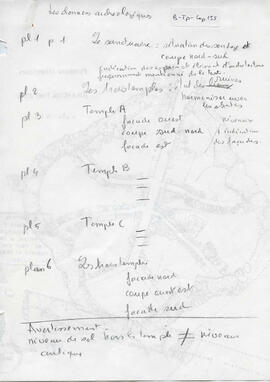 Les données archéologiques
B-Tp-Cap 155
pl 1 p 1 Le sanctuaire : situation des vestiges et
coupe nord-sud
pl. 2 Les trois temples : état des ruines
harmoniser avec
les autres
pl 3 Temple A
façade ouest niveaux
coupe sud nord + indication
façade est des façades.
pl 4 Temple B
pl 5 Temple C
plan 6 Les trois temples
façade nord
coupe ouest est
façade sud
Avertissement -
niveau de sol hors les temple ≠ niveau
antique